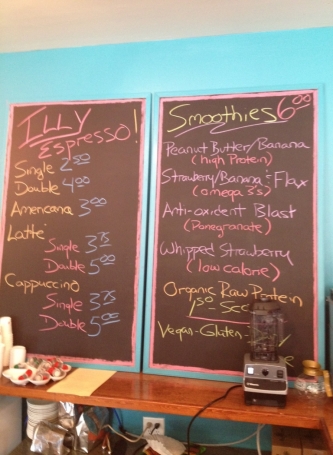 ILLY
Espresso!
Single 2.50
Double 4.00
Americana 3.00
Latte
Single 3.75
Double 5.00
Cappuccino
Single 3.75
Double 5.00
Smoothies 6.00
Peanut Butter/Banana
(high Protein)
Strawberry/Banana & Flax
(omega 3's)
Anti-oxident Blast
(Pomegranate)
Whipped Strawberry
(low calorie)
Organic Raw Protein
1.50
Vegan-Gluten-